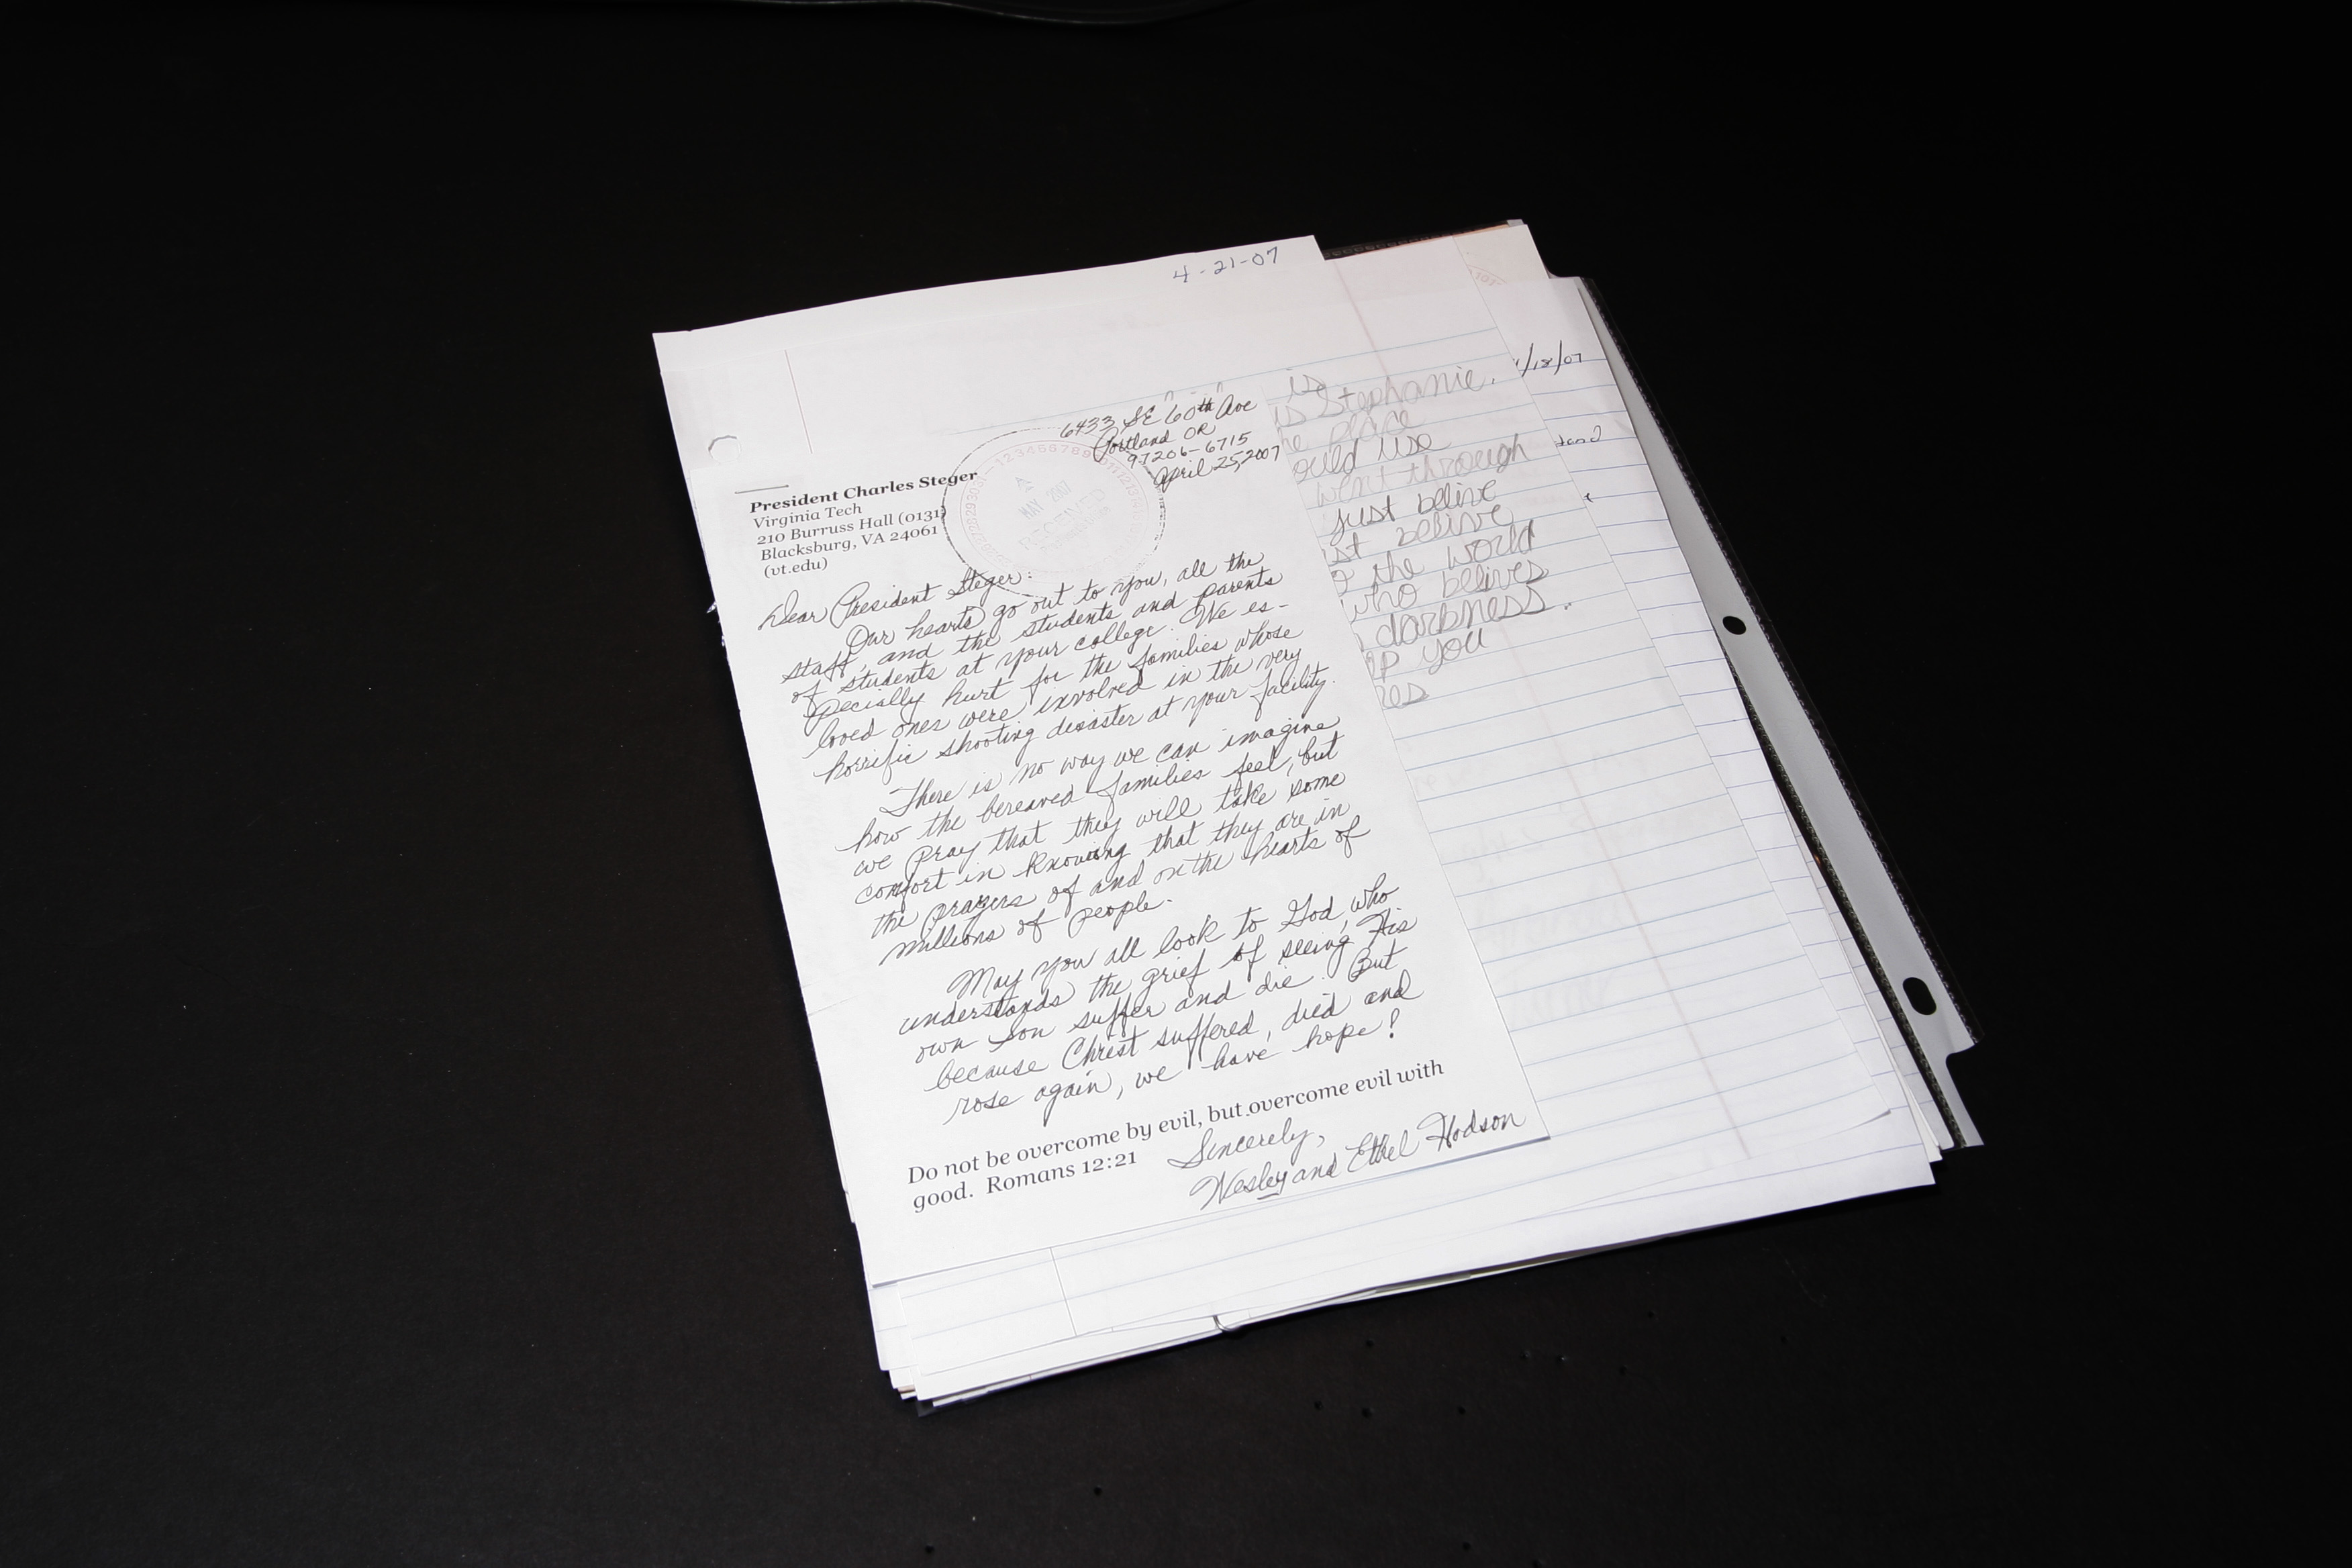 4-21-07
6433 SE 60th Ave
Portland OR
97206-6715
April 25, 2007
MAY 2007
RECEIVED
President Charles Steger
Virginia Tech
210 Burruss Hall (0131)
Blacksburg, VA 24061
(vt.edu)
Dear President Steger:
Our hearts go out to you, all the
staff, and the students and parents
of students at your college. We es-
pecially hurt for the families whose
loved ones were involved in the very
horrific shooting disaster at your facility.
There is no way we can imagine
how the bereaved families feel, but
we pray that they will take some
comfort in knowing that they are in
the prayers of and on the hearts of
millions of people.
May you all look to God, who
understands the grief of seeing His
own Son suffer and die. But
because Christ suffered, died and
rose again, we have hope!
Do not be overcome by evil, but overcome evil with
good. Romans 12:21
Sincerely,
Wesley and Ethel Hodson
is
is Stephanie.
place
ould use
went through
just belive
st belive
the world
who belives
darkness.
p you
es
/18/07